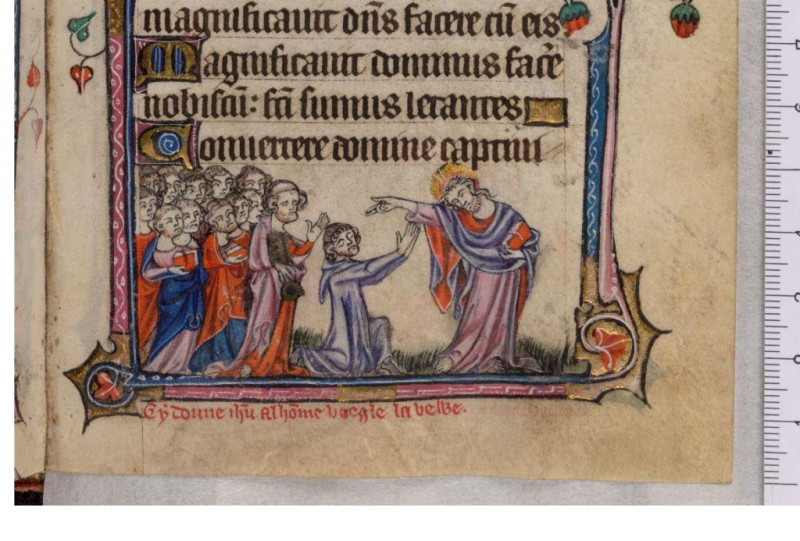 magnificauit dn̄s facere cū eis
Magnificauit dominus facēe
nobiscū: fcī sumus letantes
Conuertere domine captiui
Cy doune ihū al hōme voegle la velwe.